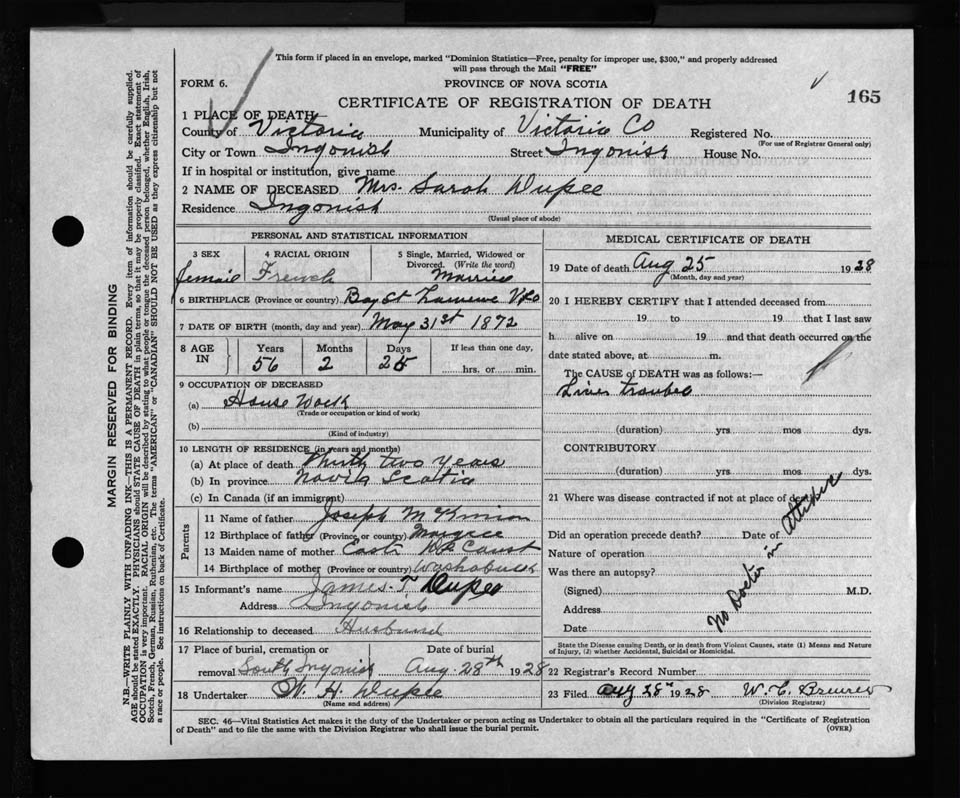 This form if placed in an envelope, marked "Dominion Statistics—Free, penalty for improper use, $300," and properly addressed
will pass through the Mail "FREE"
FORM 6.
PROVINCE OF NOVA SCOTIA
165
CERTIFICATE OF REGISTRATION OF DEATH
1 PLACE OF DEATH
County of Victoria Municipality of Victoria Co Registered No.
(For use of Registrar General only)
City or Town Ingonish Street Ingonish House No.
If in hospital or institution, give name
2 NAME OF DECEASED Mrs. Sarah Dupee
Residence Ingonish
(Usual place of abode)
PERSONAL AND STATISTICAL INFORMATION
3 SEX 4 RACIAL ORIGIN 5 Single, Married, Widowed or
Divorced. (Write the word)
female French Married
6 BIRTHPLACE (Province or country) Bay St
7 DATE OF BIRTH (month, day and year) May 31st 1872
8 AGE IN Years Months Days If less than one day,
56 2 25 hrs. or min.
9 OCCUPATION OF DECEASED
(a) House Work
(Trade or occupation or kind of work)
(b)
(Kind of industry)
10 LENGTH OF RESIDENCE (in years and months)
(a) At place of death Thirty two years
(b) In province Novia Scotia
(c) In Canada (if an immigrant)
Parents
11 Name of father Joseph McKinnon
12 Birthplace of father (Province or country) Margree
13 Maiden name of mother
14 Birthplace of mother (Province or country) Washabuck
15 Informant's name James T. Dupee
Address Ingonish
16 Relationship to deceased Husband
17 Place of burial, cremation or Date of burial
removal South Ingonish Aug. 28th 1928
18 Undertaker W. H. Dupee
(Name and address)
MEDICAL CERTIFICATE OF DEATH
19 Date of death Aug 25 1928
(Month, day and year)
20 I HEREBY CERTIFY that I attended deceased from
19 to 19 that I last saw
h alive on 19 and that death occurred on the
date stated above, at m.
The CAUSE OF DEATH was as follows:—
Liver trouble
(duration) yrs mos dys.
CONTRIBUTORY
(duration) yrs mos dys.
21 Where was disease contracted if not at place of death
Did an operation precede death? Date of
Nature of operation
Was there an autopsy?
(Signed) M.D.
Address
Date
No Doctor in
State the Disease causing Death, or in death from Violent Causes, state (1) Means and Nature
of Injury, (2) whether Accidental, Suicidal or Homicidal.
22 Registrar's Record Number
23 Filed Aug 25 1928 W. C.
(Division Registrar)
SEC. 46—Vital Statistics Act makes it the duty of the Undertaker or person acting as Undertaker to obtain all the particulars required in the "Certificate of Registration
of Death" and to file the same with the Division Registrar who shall issue the burial permit. (OVER)
MARGIN RESERVED FOR BINDING
N.B.—WRITE PLAINLY WITH UNFADING INK—THIS IS A PERMANENT RECORD. Every item of information should be carefully supplied.
AGE should be stated EXACTLY. PHYSICIANS should STATE CAUSE OF DEATH in plain terms, so that it may be properly classified. Exact statement of
OCCUPATION is very important. RACIAL ORIGIN will be described by stating to what people or tongue the deceased person belonged, whether English, Irish,
Scotch, French, German, Russian, Ruthenian, etc. The terms "AMERICAN" or "CANADIAN" SHOULD NOT BE USED as they express citizenship but not
a race or people. See instructions on back of Certificate.